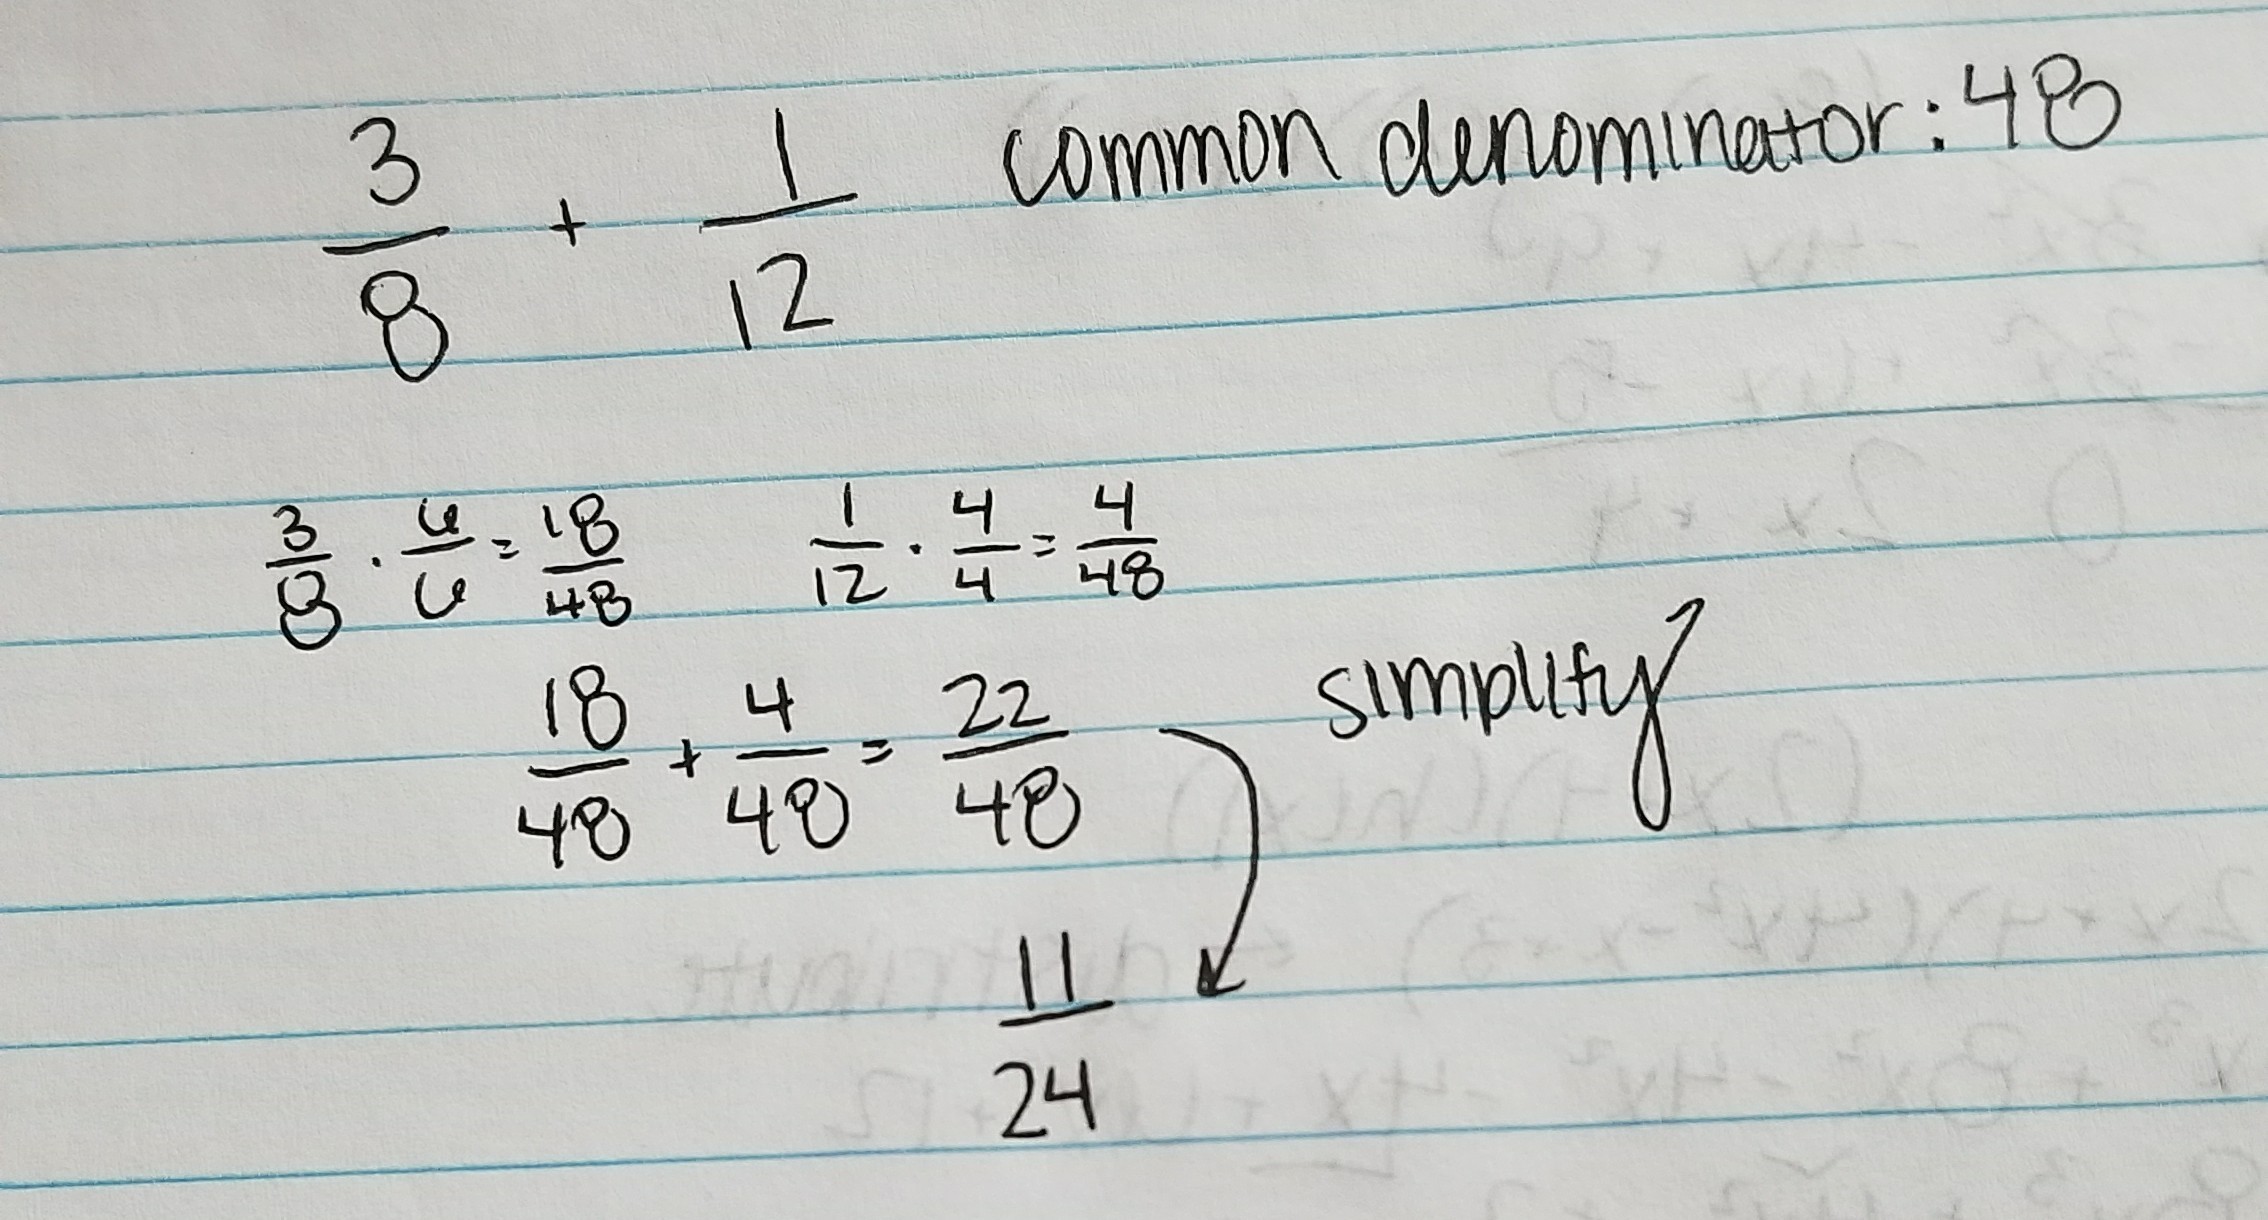 3/8 + 1/12 common denominator: 48
3/8 · 6/6 = 18/48 1/12 · 4/4 = 4/48
18/48 + 4/48 = 22/48 simplify
11/24